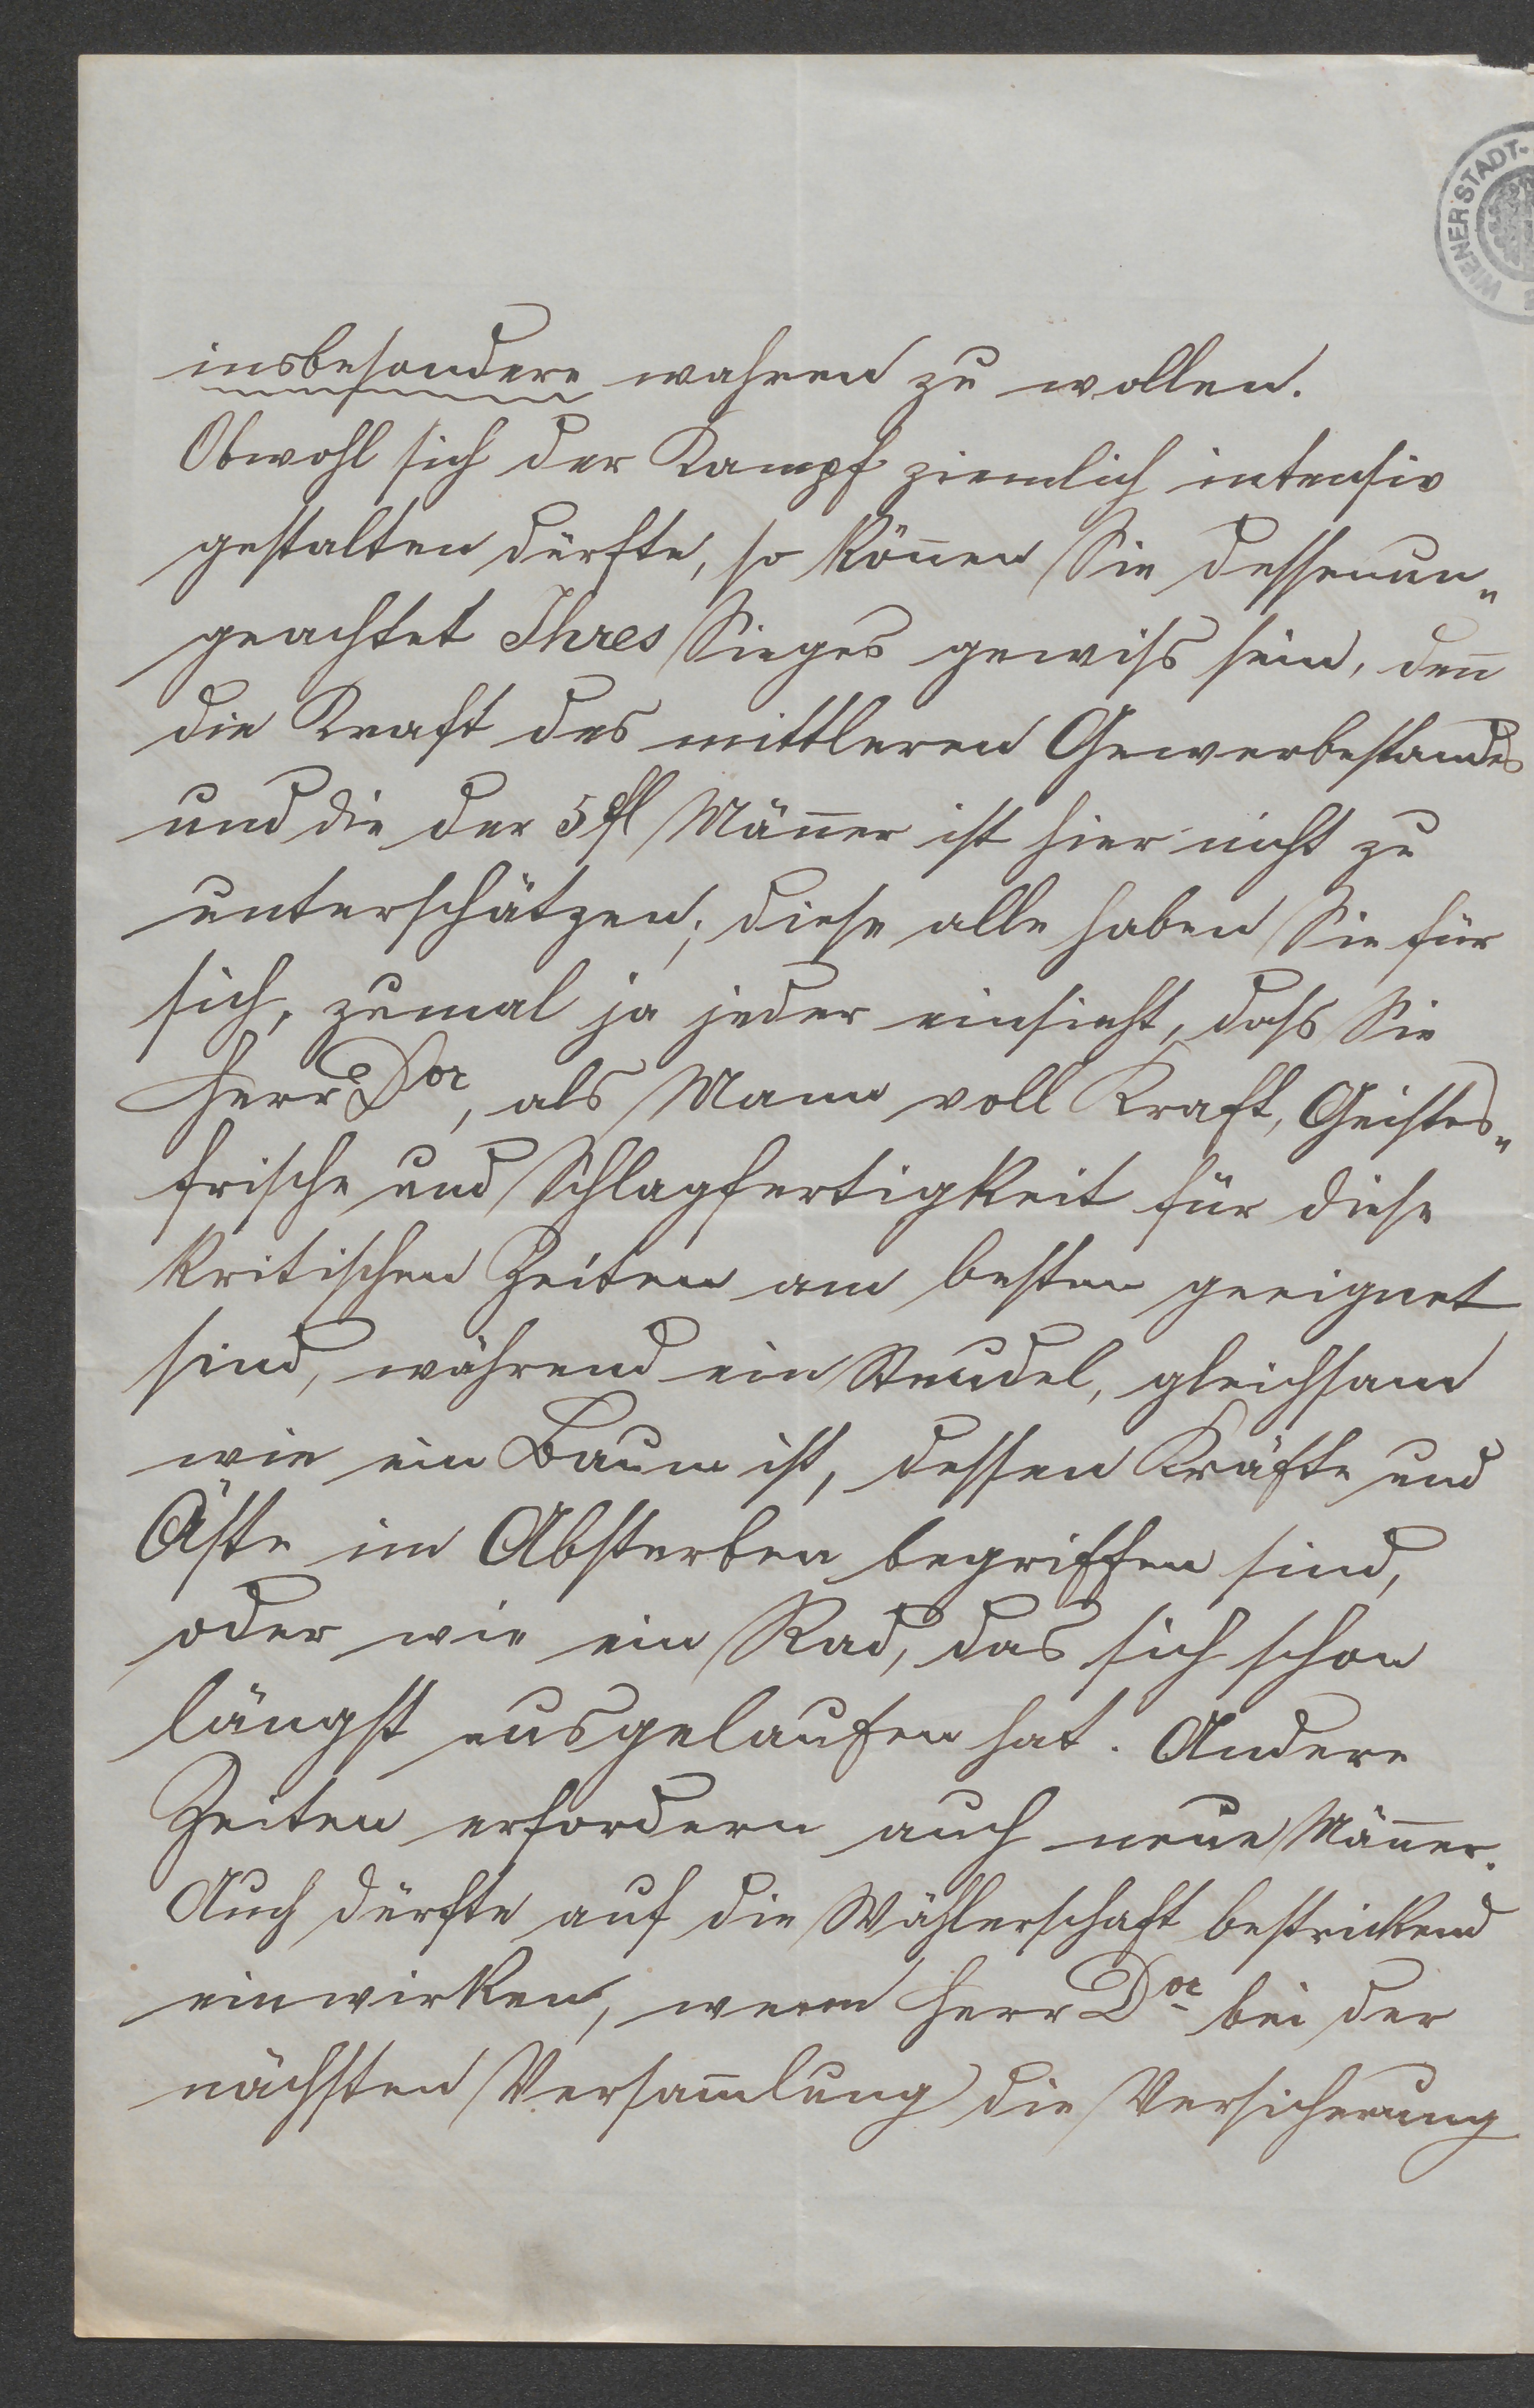 WIENER STADT-
insbesondere wahren zu wollen.
Obwohl sich der Kampf ziemlich intensiv
gestalten dürfte, so kön̄en Sie dessenun„
geachtet Ihres Sieges gewiß sein, den̄
die Kraft des mittleren Gewerbestandes
und die der 5 fl Män̄er ist hier nicht zu
unterschätzen; diese alle haben Sie für
sich, zumal ja jeder einsieht, daß Sie
Herr Dor, als Mann voll Kraft, Geistes„
frische und Schlagfertigkeit für diese
kritischen Zeiten am besten geeignet
sind, während ein Steudel, gleichsam
wie ein Baum ist, dessen Kräfte und
Äste im Absterben begriffen sind,
oder wie ein Rad, das sich schon
längst ausgelaufen hat. Andere
Zeiten erfordern auch neue Män̄er.
Auch dürfte auf die Wählerschaft bestrickend
einwirken, wenn Herr Dor bei der
nächsten Versam̄lung die Versicherung